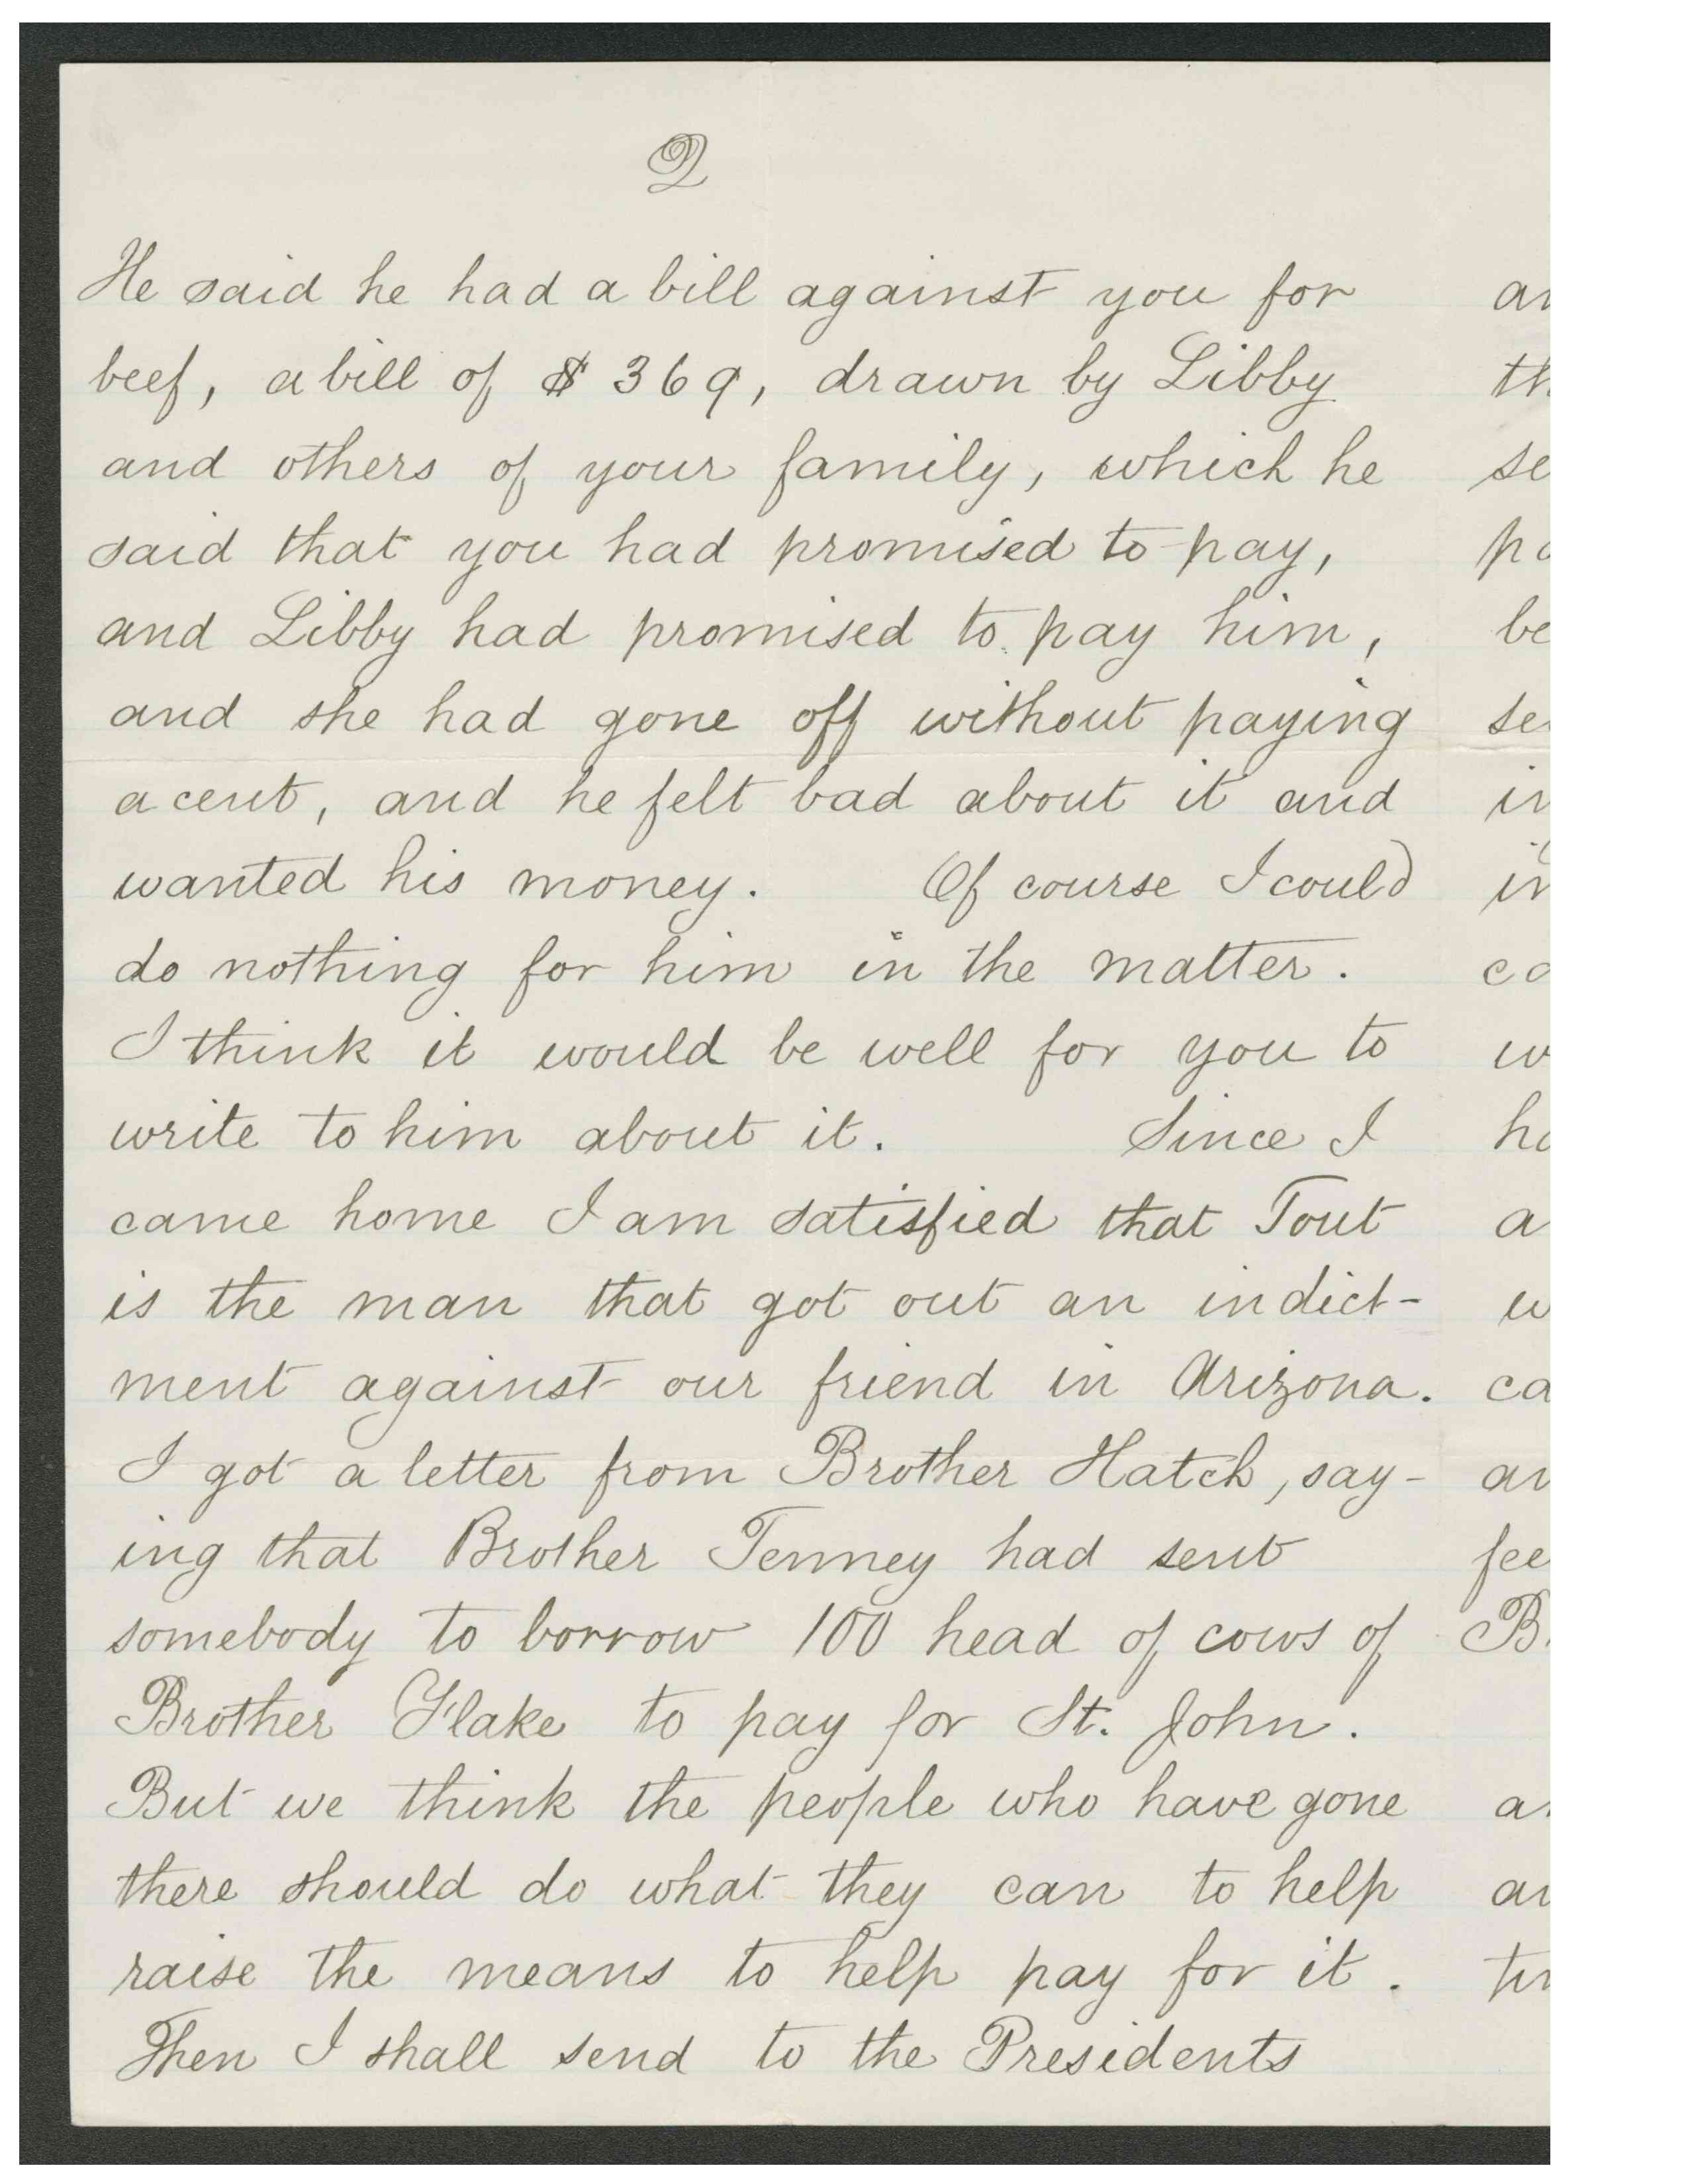 2
He said he had a bill against you for
beef, a bill of $369, drawn by Libby
and others of your family, which he
said that you had promised to pay,
and Libby had promised to pay him,
and she had gone off without paying
a cent, and he felt bad about it and
wanted his money. Of course I could
do nothing for him in the matter.
I think it would be well for you to
write to him about it. Since I
came home I am satisfied that Tout
is the man that got out an indict-
ment against our friend in Arizona.
I got a letter from Brother Hatch, say-
ing that Brother Tenney had sent
somebody to borrow 100 head of cows of
Brother Flake to pay for St. John.
But we think the people who have gone
there should do what they can to help
raise the means to help pay for it.
Then I shall send to the Presidents